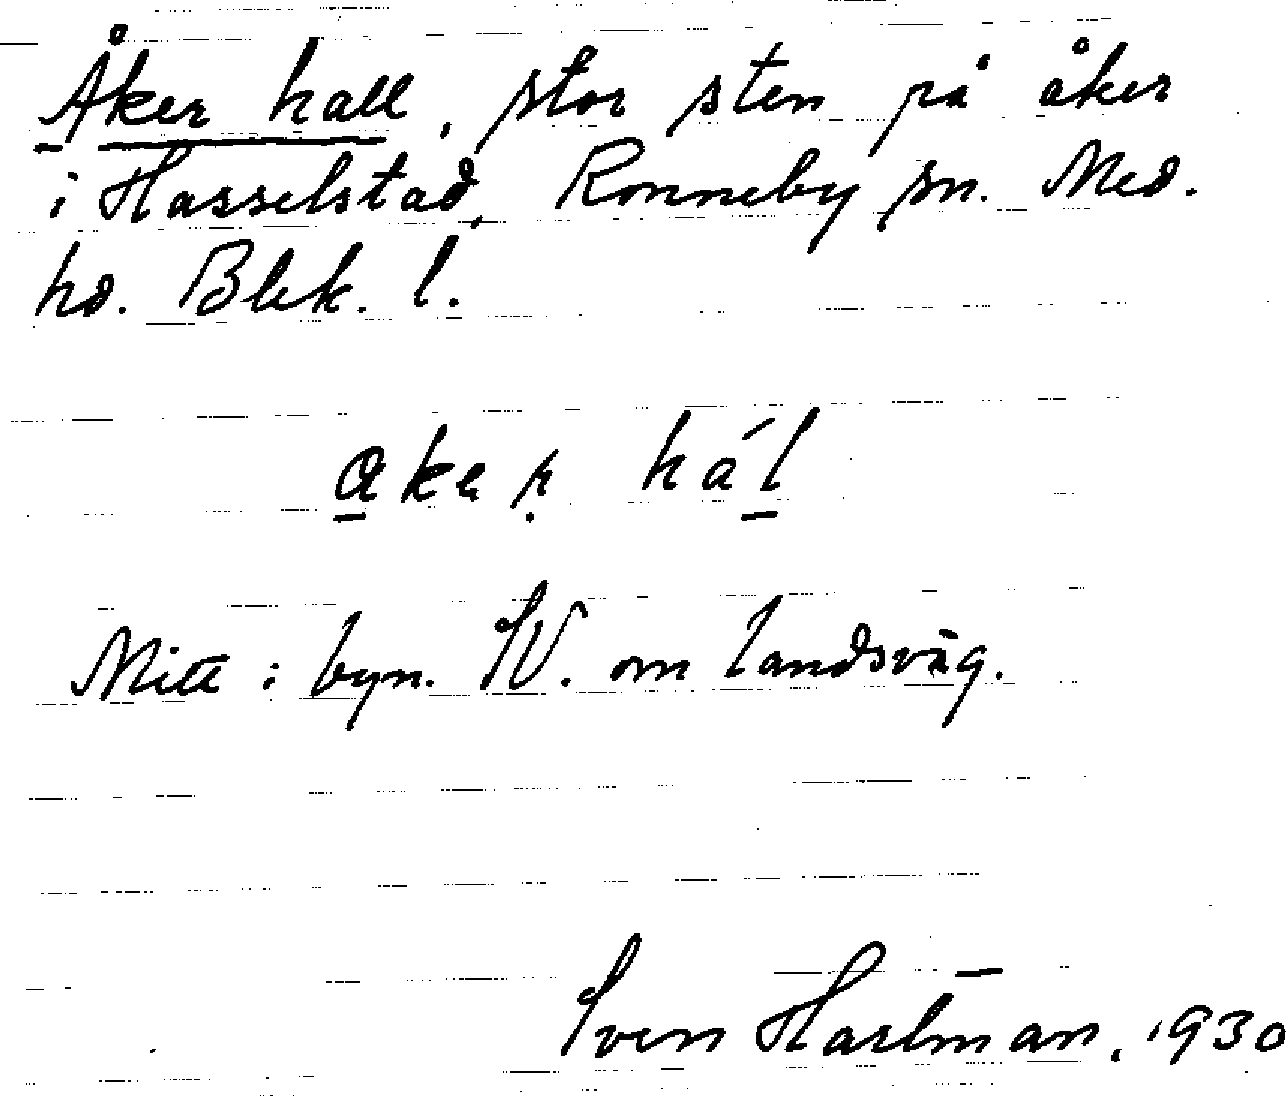 Åker hall, stor sten på åker
i Hasselstad, Ronneby sn. Med.
hd. Blek. l.
hál
Mitt i byn. SV. om landsväg.
Sven Hartman, 1930